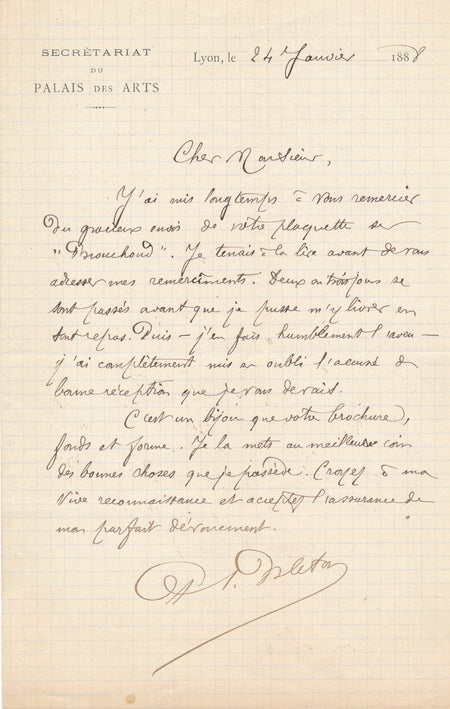 SECRÉTARIAT
DU
PALAIS DES ARTS
Lyon, le 24 Janvier 1888
Cher Monsieur,
J'ai mis longtemps à vous remercier
du gracieux envoi de votre plaquette sur
"Thouchoud". Je tenais à la lire avant de vous
adresser mes remercîments. Deux ou trois jours se
sont passés avant que je pusse m'y livrer en
tout repos. Puis — j'en fais humblement l'aveu —
j'ai complètement mis en oubli l'accusé de
bonne réception que je vous devais.
C'est un bijou que votre brochure,
fonds et forme. Je la mets au meilleur coin
des bonnes choses que je possède. Croyez à ma
vive reconnaissance et acceptez l'assurance de
mon parfait dévouement.